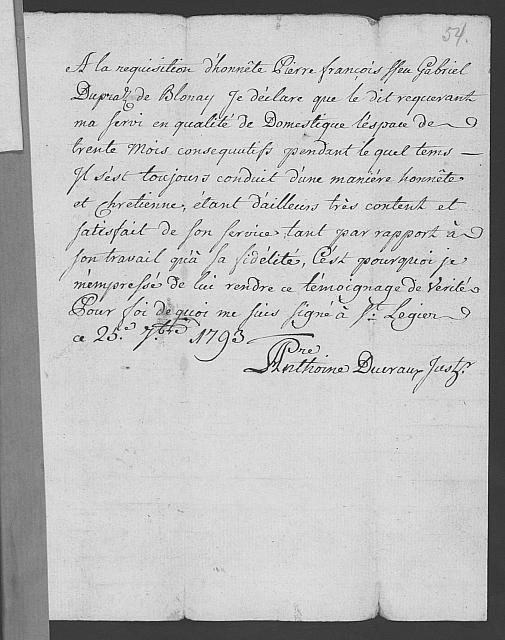 54.
A la requisition d'honnête Pierre françois ffeu Gabriel
Dupraz de Blonay Je déclare que le dit requerant
ma servi en qualité de Domestique l'éspace de
trente Mois consequutifs pendant lequel tems —
Jl s'est toujours conduit d'une maniére honnête
et chretienne, étant d'ailleurs très content et
satisfait de son service, tant par rapport à
son travail qu'à sa fidélité, C'est pourquoi je
m'empressé de lui rendre ce témoignage de Verité
Pour foi de quoi me suis signé à St. Legier
ce 25.e 7.bre 1793
Pre Anthoine Ducraux Just.r